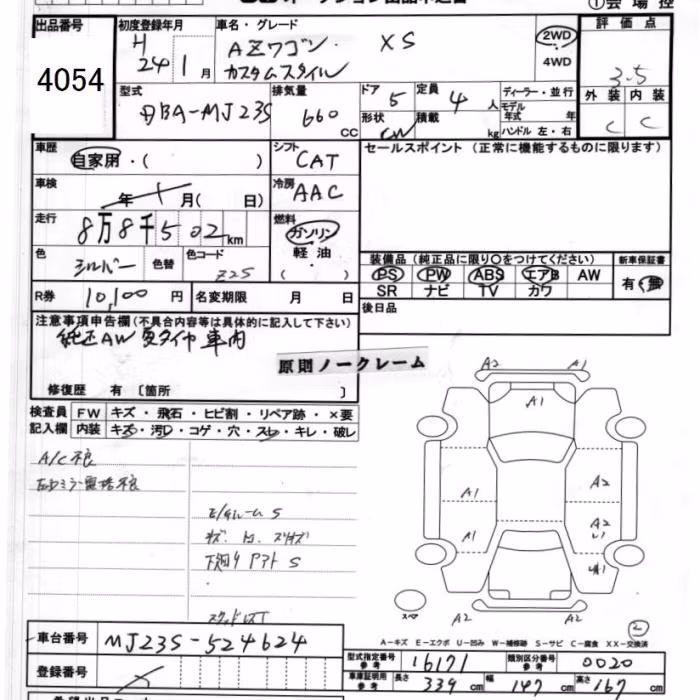 ①会場控
出品番号
4054
初度登録年月
H
24 1月
車名・グレード
AZワゴン XS
カスタムスタイル
2WD
4WD
評価点
3.5
外装 内装
C C
型式
DBA-MJ23S
排気量
660 cc
ドア
5
定員
4人
形状
積載
kg
ディーラー・並行
モデル
年式 年式
ハンドル 左・右
車歴
自家用・( )
シフト
CAT
セールスポイント（正常に機能するものに限ります）
車検
年 月( 日)
冷房
AAC
走行
8万8千502km
燃料
ガソリン
軽油
( )
色
シルバー
色替
色コード
Z2S
装備品（純正品に限り○をつけてください）
新車保証書
PS PW ABS エアB AW
SR ナビ TV カワ
有・無
R券
10,100円
名変期限 月 日
後日品
注意事項申告欄（不具合内容等は具体的に記入して下さい）
純正AW 夏タイヤ 車内
原則ノークレーム
修復歴 有 〔箇所 〕
検査員
記入欄
FW キズ・飛石・ヒビ割・リペア跡・×要
内装 キズ・汚レ・コゲ・穴・スレ・キレ・破レ
A/C不良
S
下廻り S
A2 A1
A1
A1 A2
A1 A2
スペア
A2 A2
②
A-キズ E-エクボ U-凹み W-補修跡 S-サビ C-腐食 XX-交換済
車台番号
MJ23S-524624
登録番号
型式指定番号
参考
16171
類別区分番号
参考
0020
車庫証明用
参考
長さ 339cm 幅 147cm 高さ 167cm